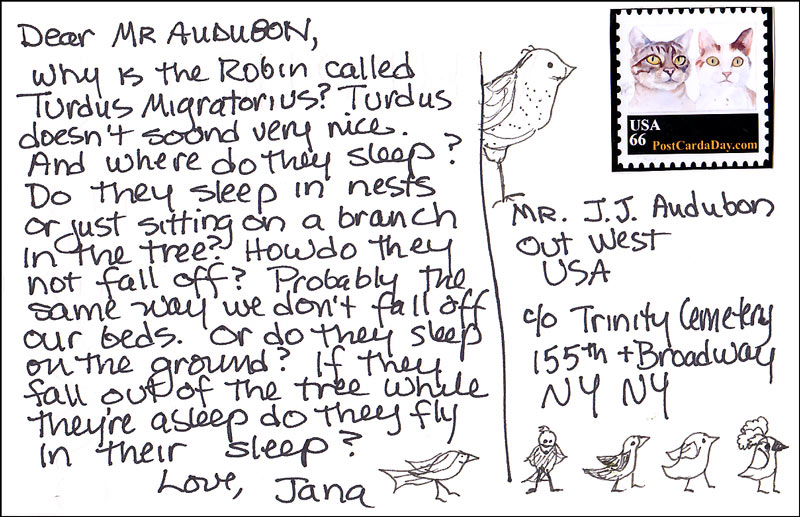 Dear MR AUDUBON,
Why is the Robin called
Turdus Migratorius? Turdus
doesn't sound very nice.
And where do they sleep?
Do they sleep in nests
or just sitting on a branch
in the tree? How do they
not fall off? Probably the
same way we don't fall off
our beds. Or do they sleep
on the ground? If they
fall out of the tree while
they're asleep do they fly
in their sleep?
Love, Jana
USA
66 PostCardaDay.com
MR. J.J. Audubon
Out West
USA
c/o Trinity Cemetery
155th + Broadway
NY NY